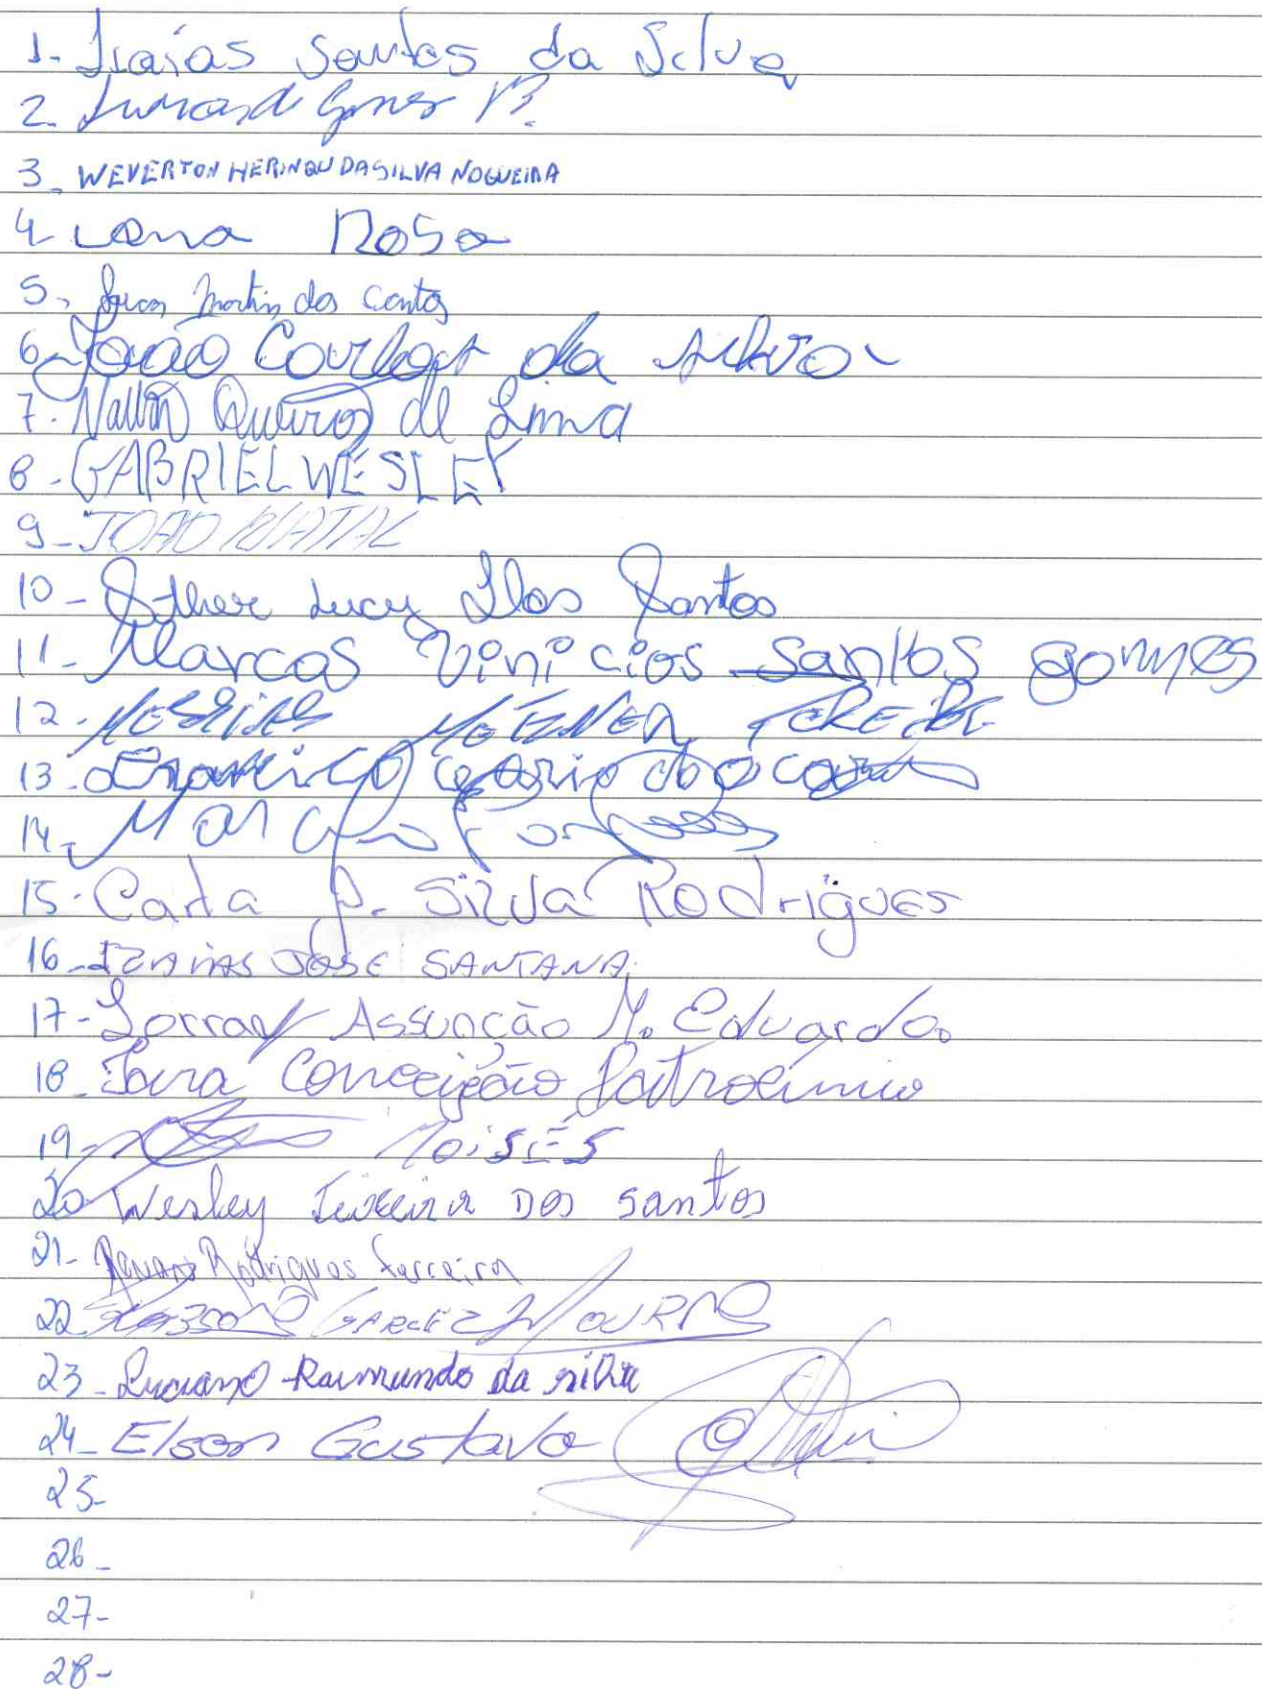 1- Isaías Santos da Silva
2-
3- WEVERTON HERINQU DA SILVA NOGUEIRA
4- Lana Rosa
5- Lucas Martin dos Santos
6- João Carlos da Silva
7- Queiroz de Lima
8- GABRIEL WESLEY
9- JOAO NATAL
10- Esther Lucy Dos Santos
11- Marcos Vinicios Santos gomes
12- MESSIAS
13-
14-
15- Carla P. Silva Rodrigues
16- IZAIAS JOSE SANTANA
17- Assunção M. Eduarda
18- Iara Conceição Patrocínio
19- MOISÉS
20- Wesley Teixeira Dos Santos
21- Renan Rodrigues Ferreira
22- GARCEZ MOURA
23- Luciano Raimundo da Silva
24- Elson Gustavo
25-
26-
27-
28-